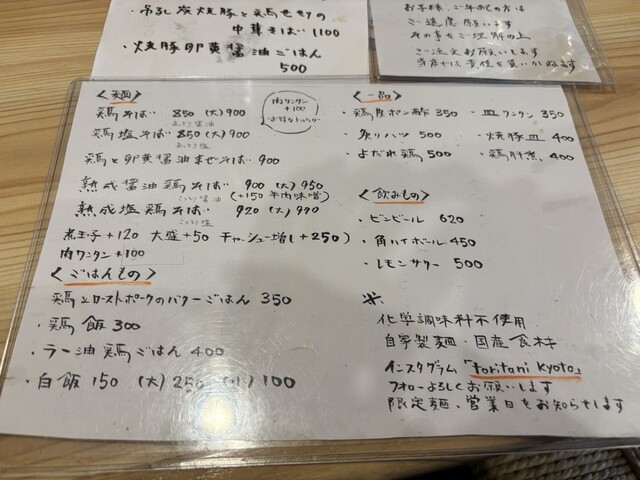 ・吊るし炭焼豚と鶏せせりの
中華そば 1100
・焼豚卵黄醤油ごはん
500
お子様、ご年配の方は
ご遠慮願います
ご理解の上
ご注文お願いします
〈麺〉
鶏そば 850 (大)900
あっさり醤油
鶏塩そば 850 (大)900
あっさり塩
鶏と卵黄醤油まぜそば 900
熟成醤油鶏そば 900 (大)950
こってり醤油 (+150 辛肉味噌)
熟成塩鶏そば 920 (大)970
こってり塩
煮玉子+120 大盛+50 チャーシュー増し+250)
肉ワンタン+100
肉ワンタン
+100
お好きなトッピング
〈ごはんもの〉
鶏とローストポークのバターごはん 350
・鶏飯 300
・ラー油鶏ごはん 400
・白飯 150 (大)250 (小)100
〈一品〉
・鶏皮ポン酢 350
・皿ワンタン 350
・炙りハツ 500
・焼豚皿 400
・よだれ鶏 500
・鶏肝煮 400
〈飲みもの〉
・ビンビール 620
・角ハイボール 450
・レモンサワー 500
※
化学調味料不使用
自家製麺・国産食材
インスタグラム「toritani kyoto」
フォローよろしくお願いします
限定麺、営業日をお知らせします